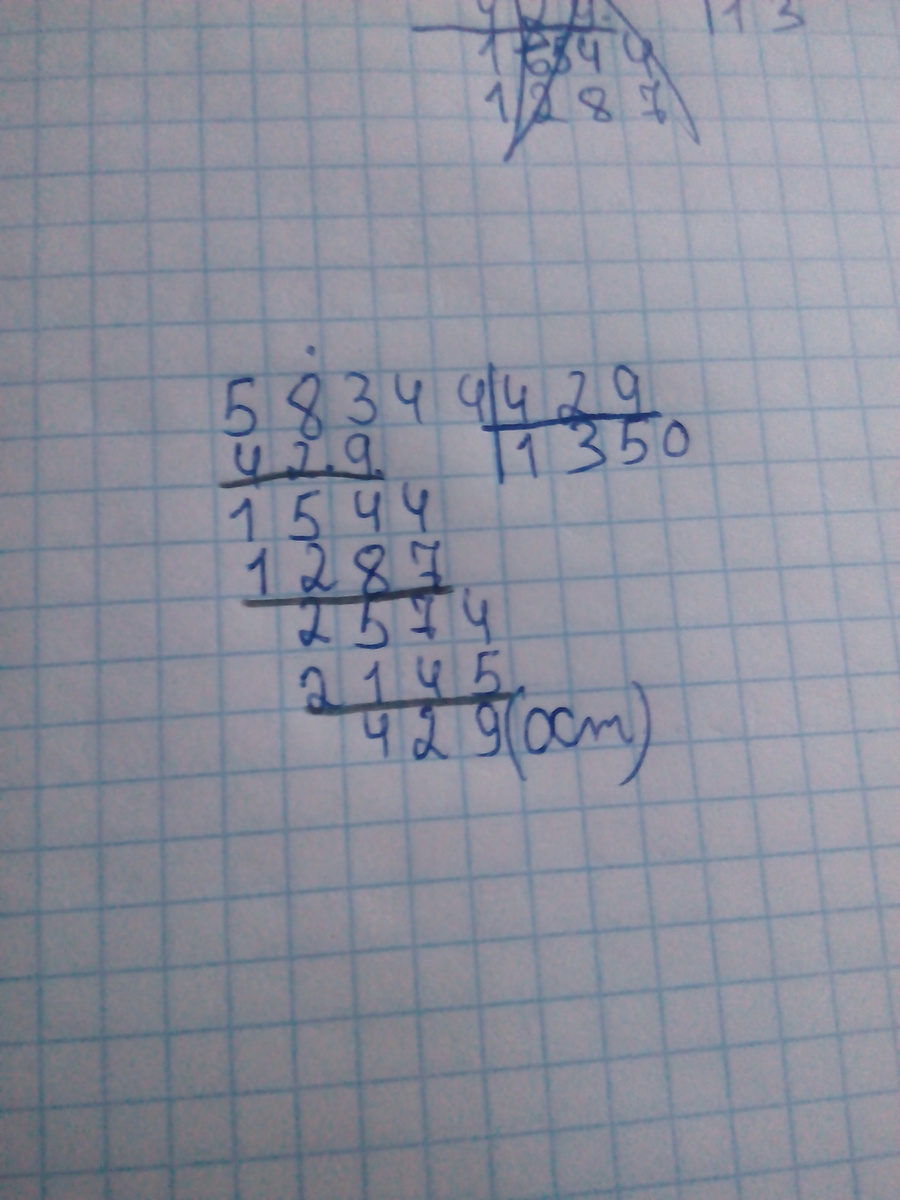 13
1 2 8 7
5 8 3 4 4 4 2 9
4 2 9 1 3 5 0
1 5 4 4
1 2 8 7
2 5 7 4
2 1 4 5
4 2 9 (ост)